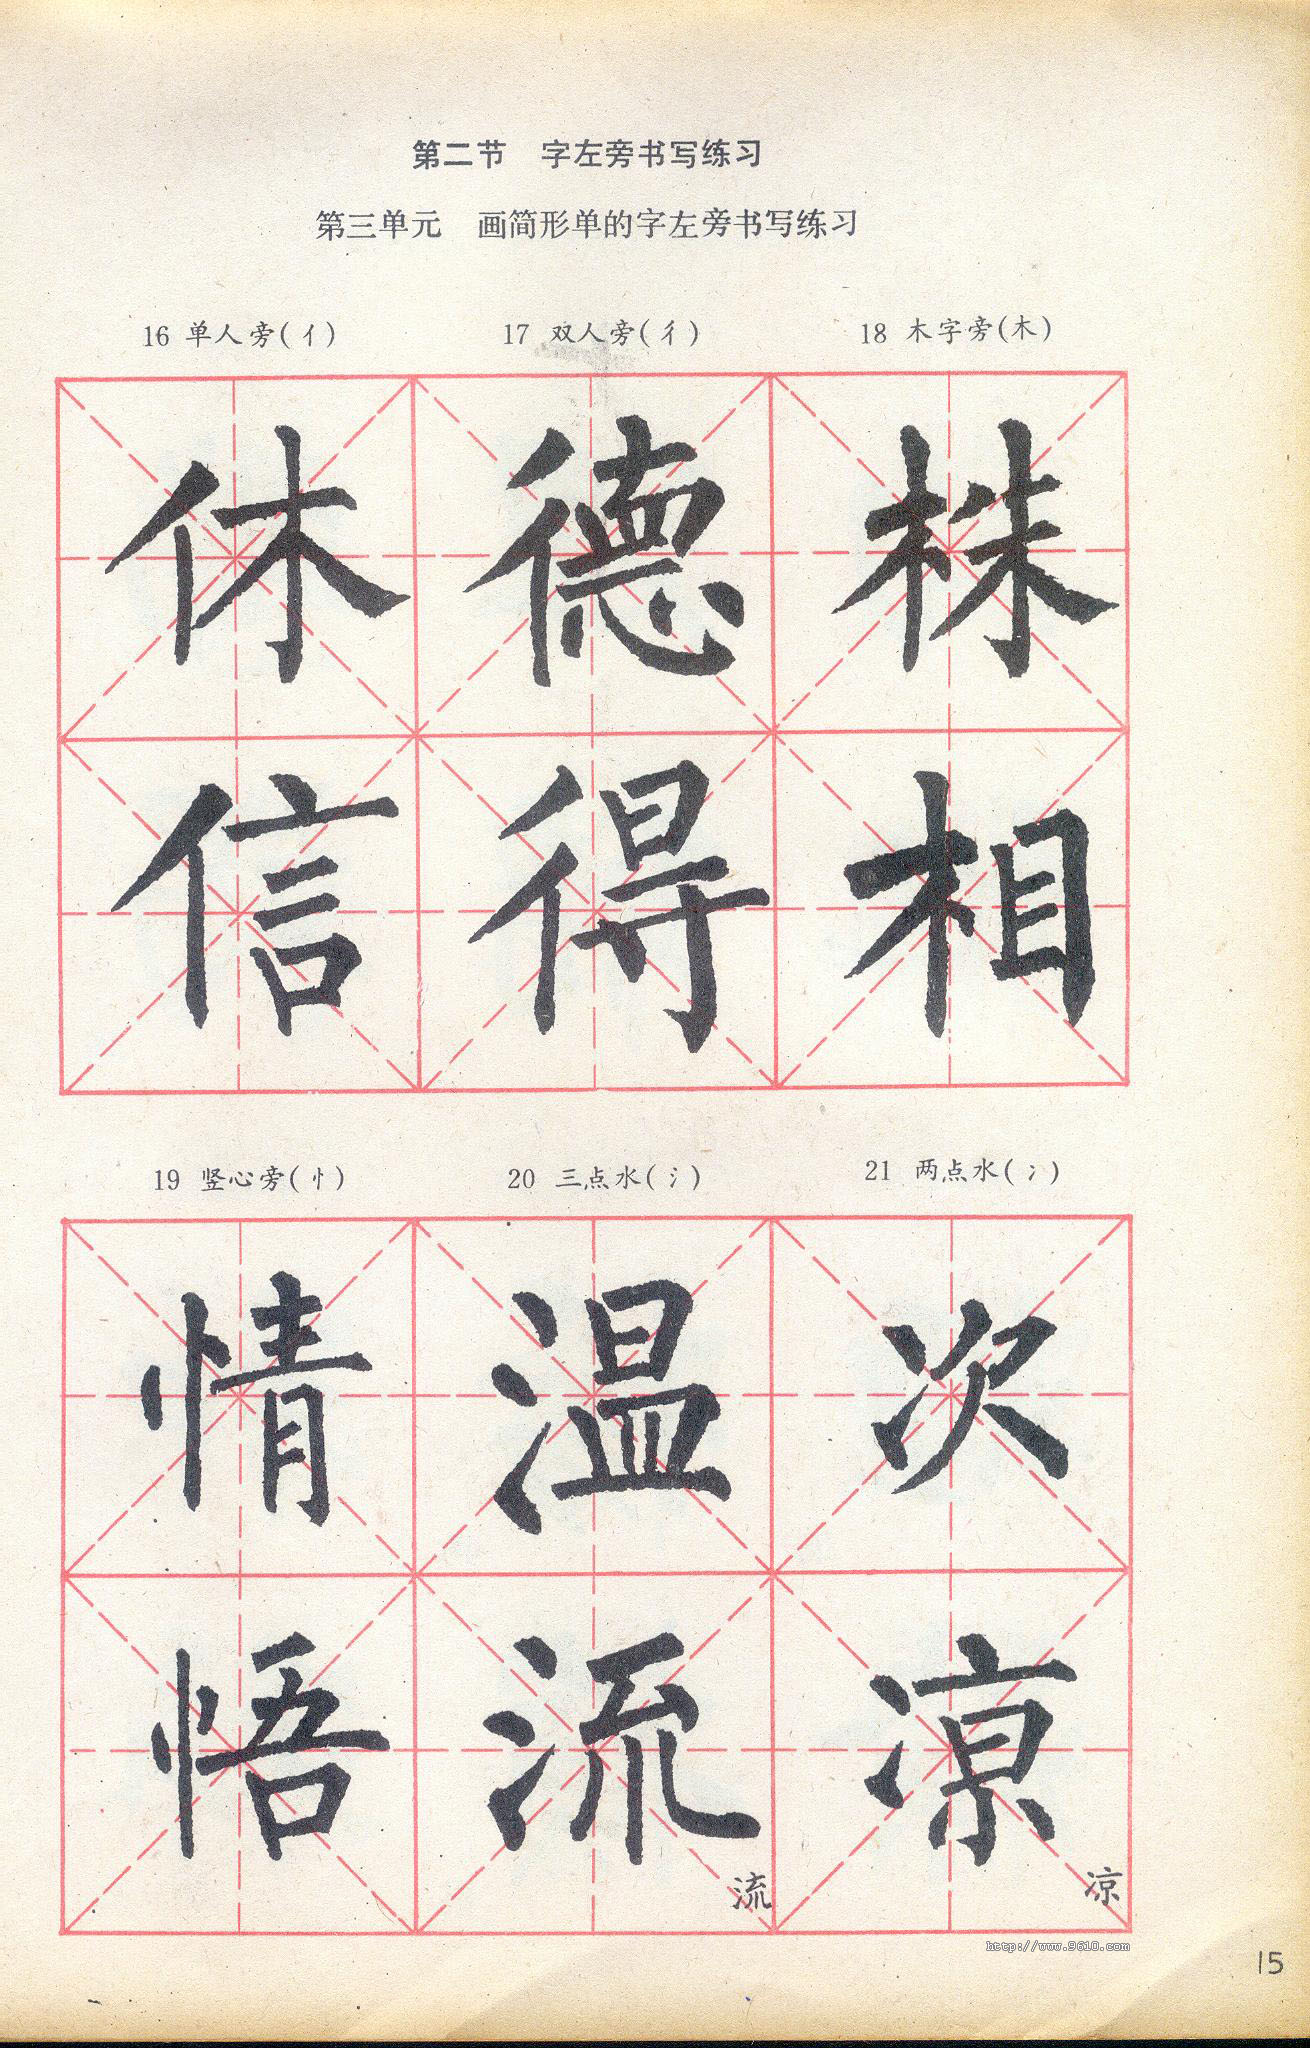 第二节 字左旁书写练习
第三单元 画简形单的字左旁书写练习
16 单人旁(亻) 17 双人旁(彳) 18 木字旁(木)
休 德 株
信 得 相
19 竖心旁(忄) 20 三点水(氵) 21 两点水(冫)
情 温 次
悟 流 凉
流 凉
http://www.9610.com
15